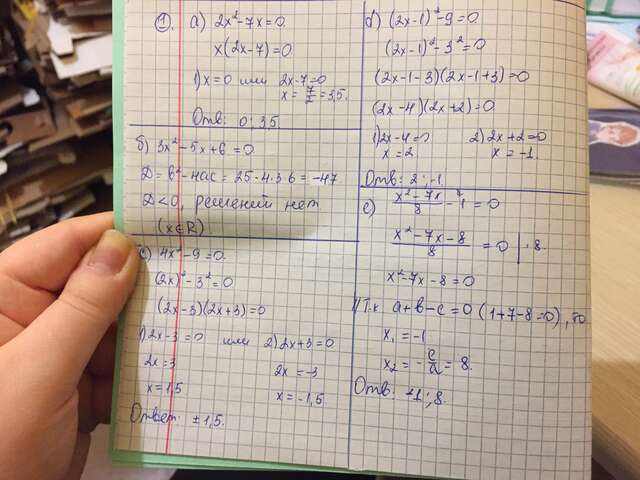 ① a) 2x²-7x=0
x(2x-7)=0
1) x=0 или 2x-7=0
x=7/2=3,5.
Отв: 0; 3,5
б) 3x²-5x+6=0
D=b²-4ac=25-4·3·6=-47
D<0, решений нет
(x∈R)
c) 4x²-9=0.
(2x)²-3²=0
(2x-3)(2x+3)=0
1) 2x-3=0 или 2) 2x+3=0
2x=3 2x=-3
x=1,5 x=-1,5
Ответ: ±1,5.
d) (2x-1)²-9=0
(2x-1)²-3²=0
(2x-1-3)(2x-1+3)=0
(2x-4)(2x+2)=0
1) 2x-4=0 2) 2x+2=0
x=2 x=-1.
Отв: 2; -1.
e) (x²-7x)/8-1=0
(x²-7x-8)/8=0 |·8.
x²-7x-8=0
Т.к a+b-c=0 (1+7-8=0), то
x₁=-1
x₂=-c/a=8.
Отв: -1; 8.